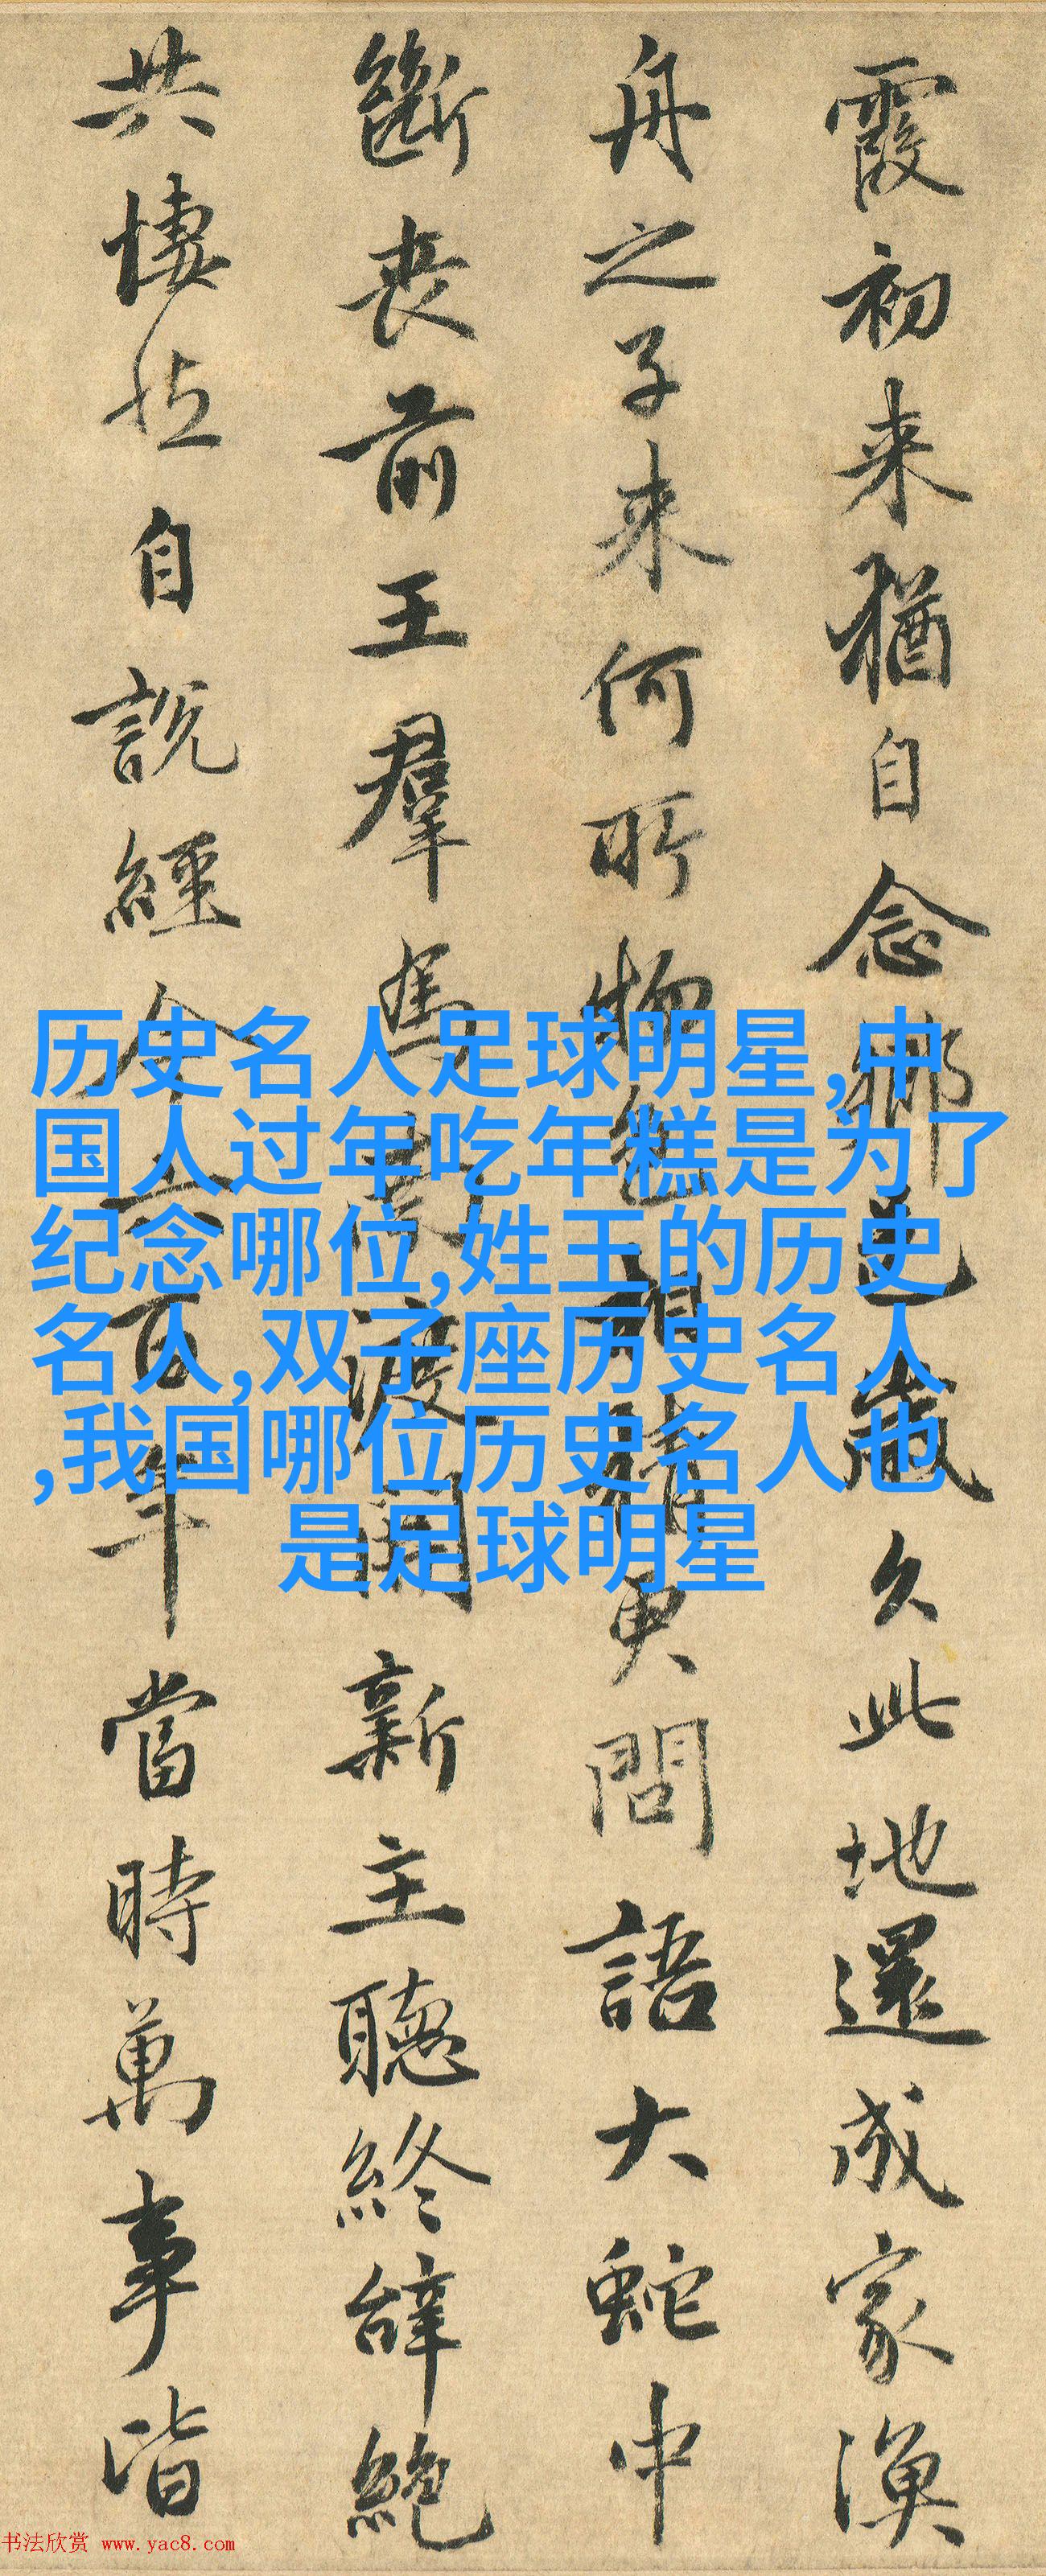 霞初来猶自念鄉邑歲久此地還成家漁
舟之子来何所物色相猜更問語大蛇中
斷喪前王羣馬南渡開新主聽終辭絕
共悽然自說經今六百年當時萬事皆
历史名人足球明星,中
国人过年吃年糕是为了
纪念哪位,姓王的历史
名人,双子座历史名人
,我国哪位历史名人也
是足球明星
书法欣赏 www.yac8.com